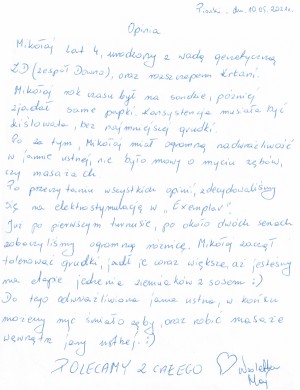 Pisaki, dn. 10.05.2021r.
Opinia
Mikołaj lat 4, urodzony z wadą genetyczną
ZD (zespół Downa), oraz rozszczepem krtani.
Mikołaj rok czasu był na sondzie, później
zjadał same papki. Konsystencja musiała być
kisielowata, bez najmniejszej grudki.
Po za tym, Mikołaj miał ogromną nadwrażliwość
w jamie ustnej, nie było mowy o myciu zębów,
czy masażach.
Po przeczytaniu wszystkich opinii, zdecydowaliśmy
się na elektrostymulację w „Exemplar”.
Już po pierwszym turnusie, po około dwóch seriach
zobaczyliśmy ogromną różnicę. Mikołaj zaczął
tolerować grudki, jadł je coraz większe, aż jesteśmy
na etapie jedzenia ziemniaków z sosem :)
Do tego odwrażliwiona jama ustna, w końcu
możemy myć śmiało zęby, oraz robić masaże
wewnątrz jamy ustnej. :)
POLECAMY Z CAŁEGO ♡ Wioletta
Maj